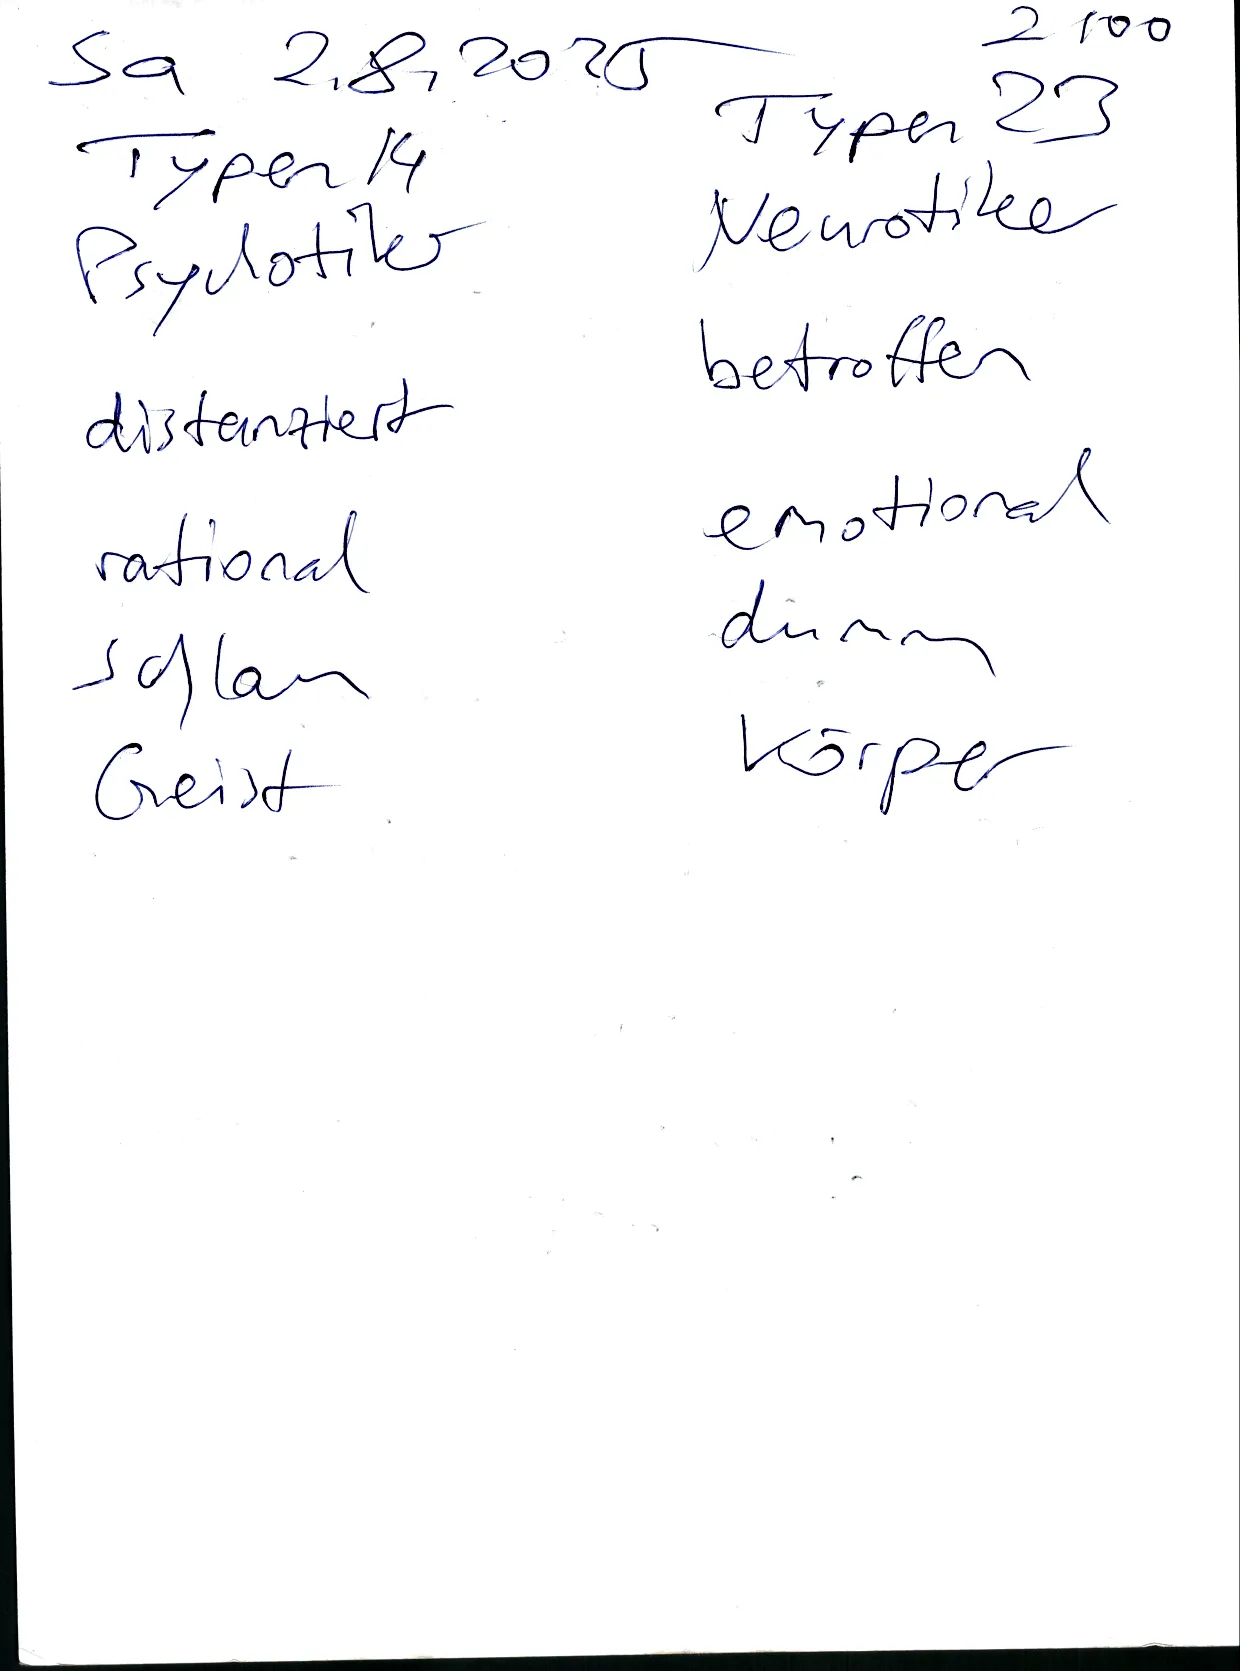 2100
Sa 2.8.2025
Typen 14
Psychotiker
distanziert
rational
schlau
Geist
Typen 23
Neurotiker
betroffen
emotional
dumm
Körper